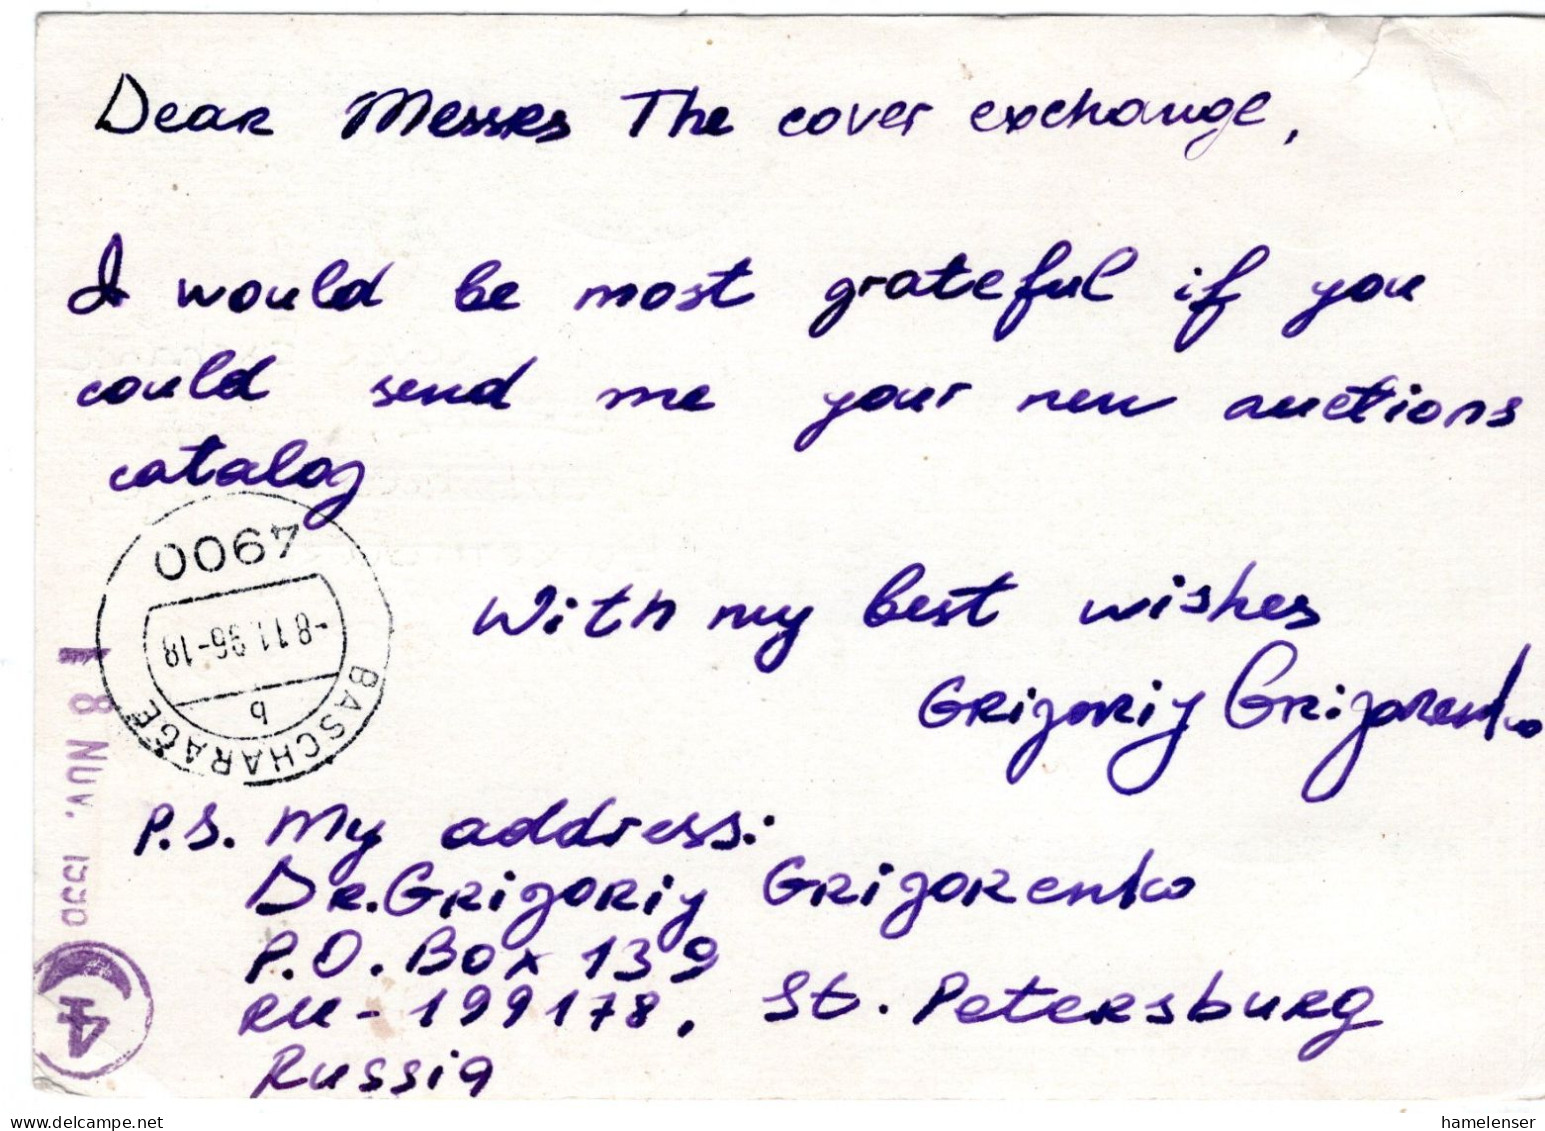 Dear Messrs The cover exchange,
I would be most grateful if you
could send me your new auctions
catalog
4900
-8.11.96-18
b
BASCHARAGE
With my best wishes
Grigoriy Grigorenko
P.S. My address:
Dr. Grigoriy Grigorenko
P.O. Box 139
RU-199178, St. Petersburg
Russia
8 Nov.
4
hamelenser